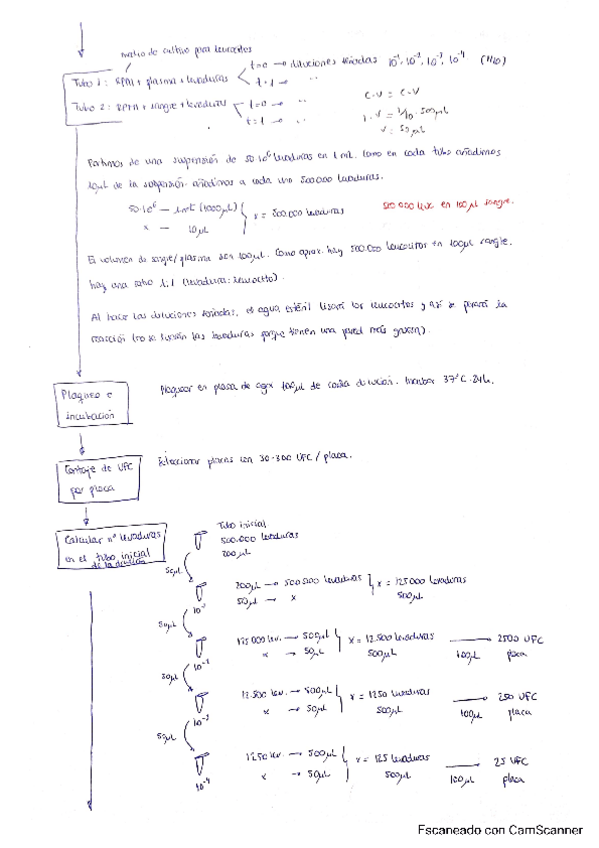 medio de cultivo para leucocitos
Tubo 1: RPMI + plasma + levaduras t=0 → diluciones seriadas 10⁻¹, 10⁻², 10⁻³, 10⁻⁴ (H₂O)
t=1 → "
Tubo 2: RPMI + sangre + levaduras t=0 → "
t=1 → "
C·V = C·V
1·V = 1/10 · 500µL
V = 50µL
Partimos de una suspensión de 50·10⁶ levaduras en 1 mL. Como en cada tubo añadimos
10µL de la suspensión, añadimos a cada uno 500000 levaduras.
50·10⁶ — 1mL (1000µL)
x — 10µL
x = 500.000 levaduras
500 000 leuc en 100µL sangre.
El volumen de sangre/plasma son 100µL. Como aprox. hay 500.000 leucocitos en 100µL sangre,
hay una ratio 1:1 (levadura:leucocito).
Al hacer las diluciones seriadas, el agua estéril lisará los leucocitos y así se parará la
reacción (no se lisarán las levaduras porque tienen una pared más gruesa).
Plaqueo e
incubación
Plaquear en placa de agar 100µL de cada dilución. Incubar 37ºC 24h.
Contaje de UFC
por placa
Seleccionar placas con 30-300 UFC/placa.
Calcular nº levaduras
en el tubo inicial
de la dilución
Tubo inicial
500.000 levaduras
200µL
50µL
10⁻¹
200µL → 500000 levaduras
50µL → x
x = 125000 levaduras
500µL
50µL
10⁻²
125000 lev. → 500µL
x → 50µL
x = 12.500 levaduras
500µL
100µL
2500 UFC
placa
50µL
10⁻³
12.500 lev. → 500µL
x → 50µL
x = 1250 levaduras
500µL
100µL
250 UFC
placa
50µL
10⁻⁴
1250 lev. → 500µL
x → 50µL
x = 125 levaduras
500µL
100µL
25 UFC
placa
Escaneado con CamScanner